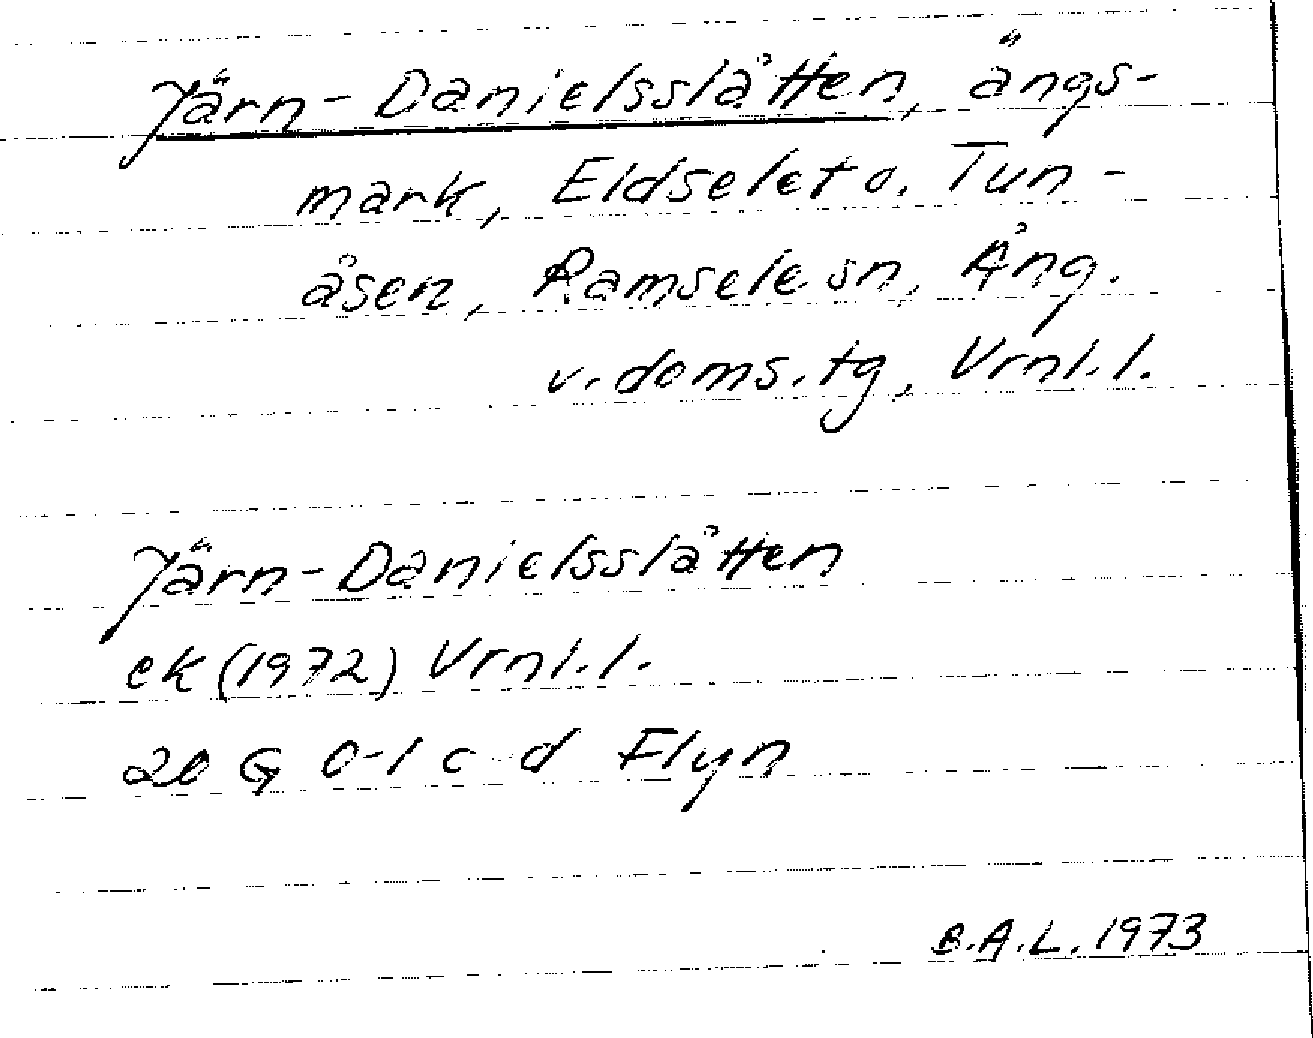 Järn-Danielsslåtten, ängs-
mark, Eldselet o. Tun-
åsen, Ramsele sn, Ång.
v. doms. tg, Vrnl. l.
Järn-Danielsslåtten
ek (1972) Vrnl. l.
20 G 0-1 c-d Flyn
B.A.L. 1973